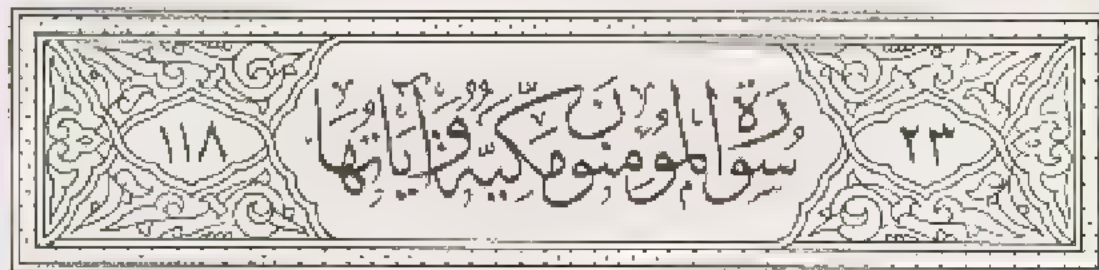 ٢٣ سورة المؤمنون مكية وآياتها ١١٨